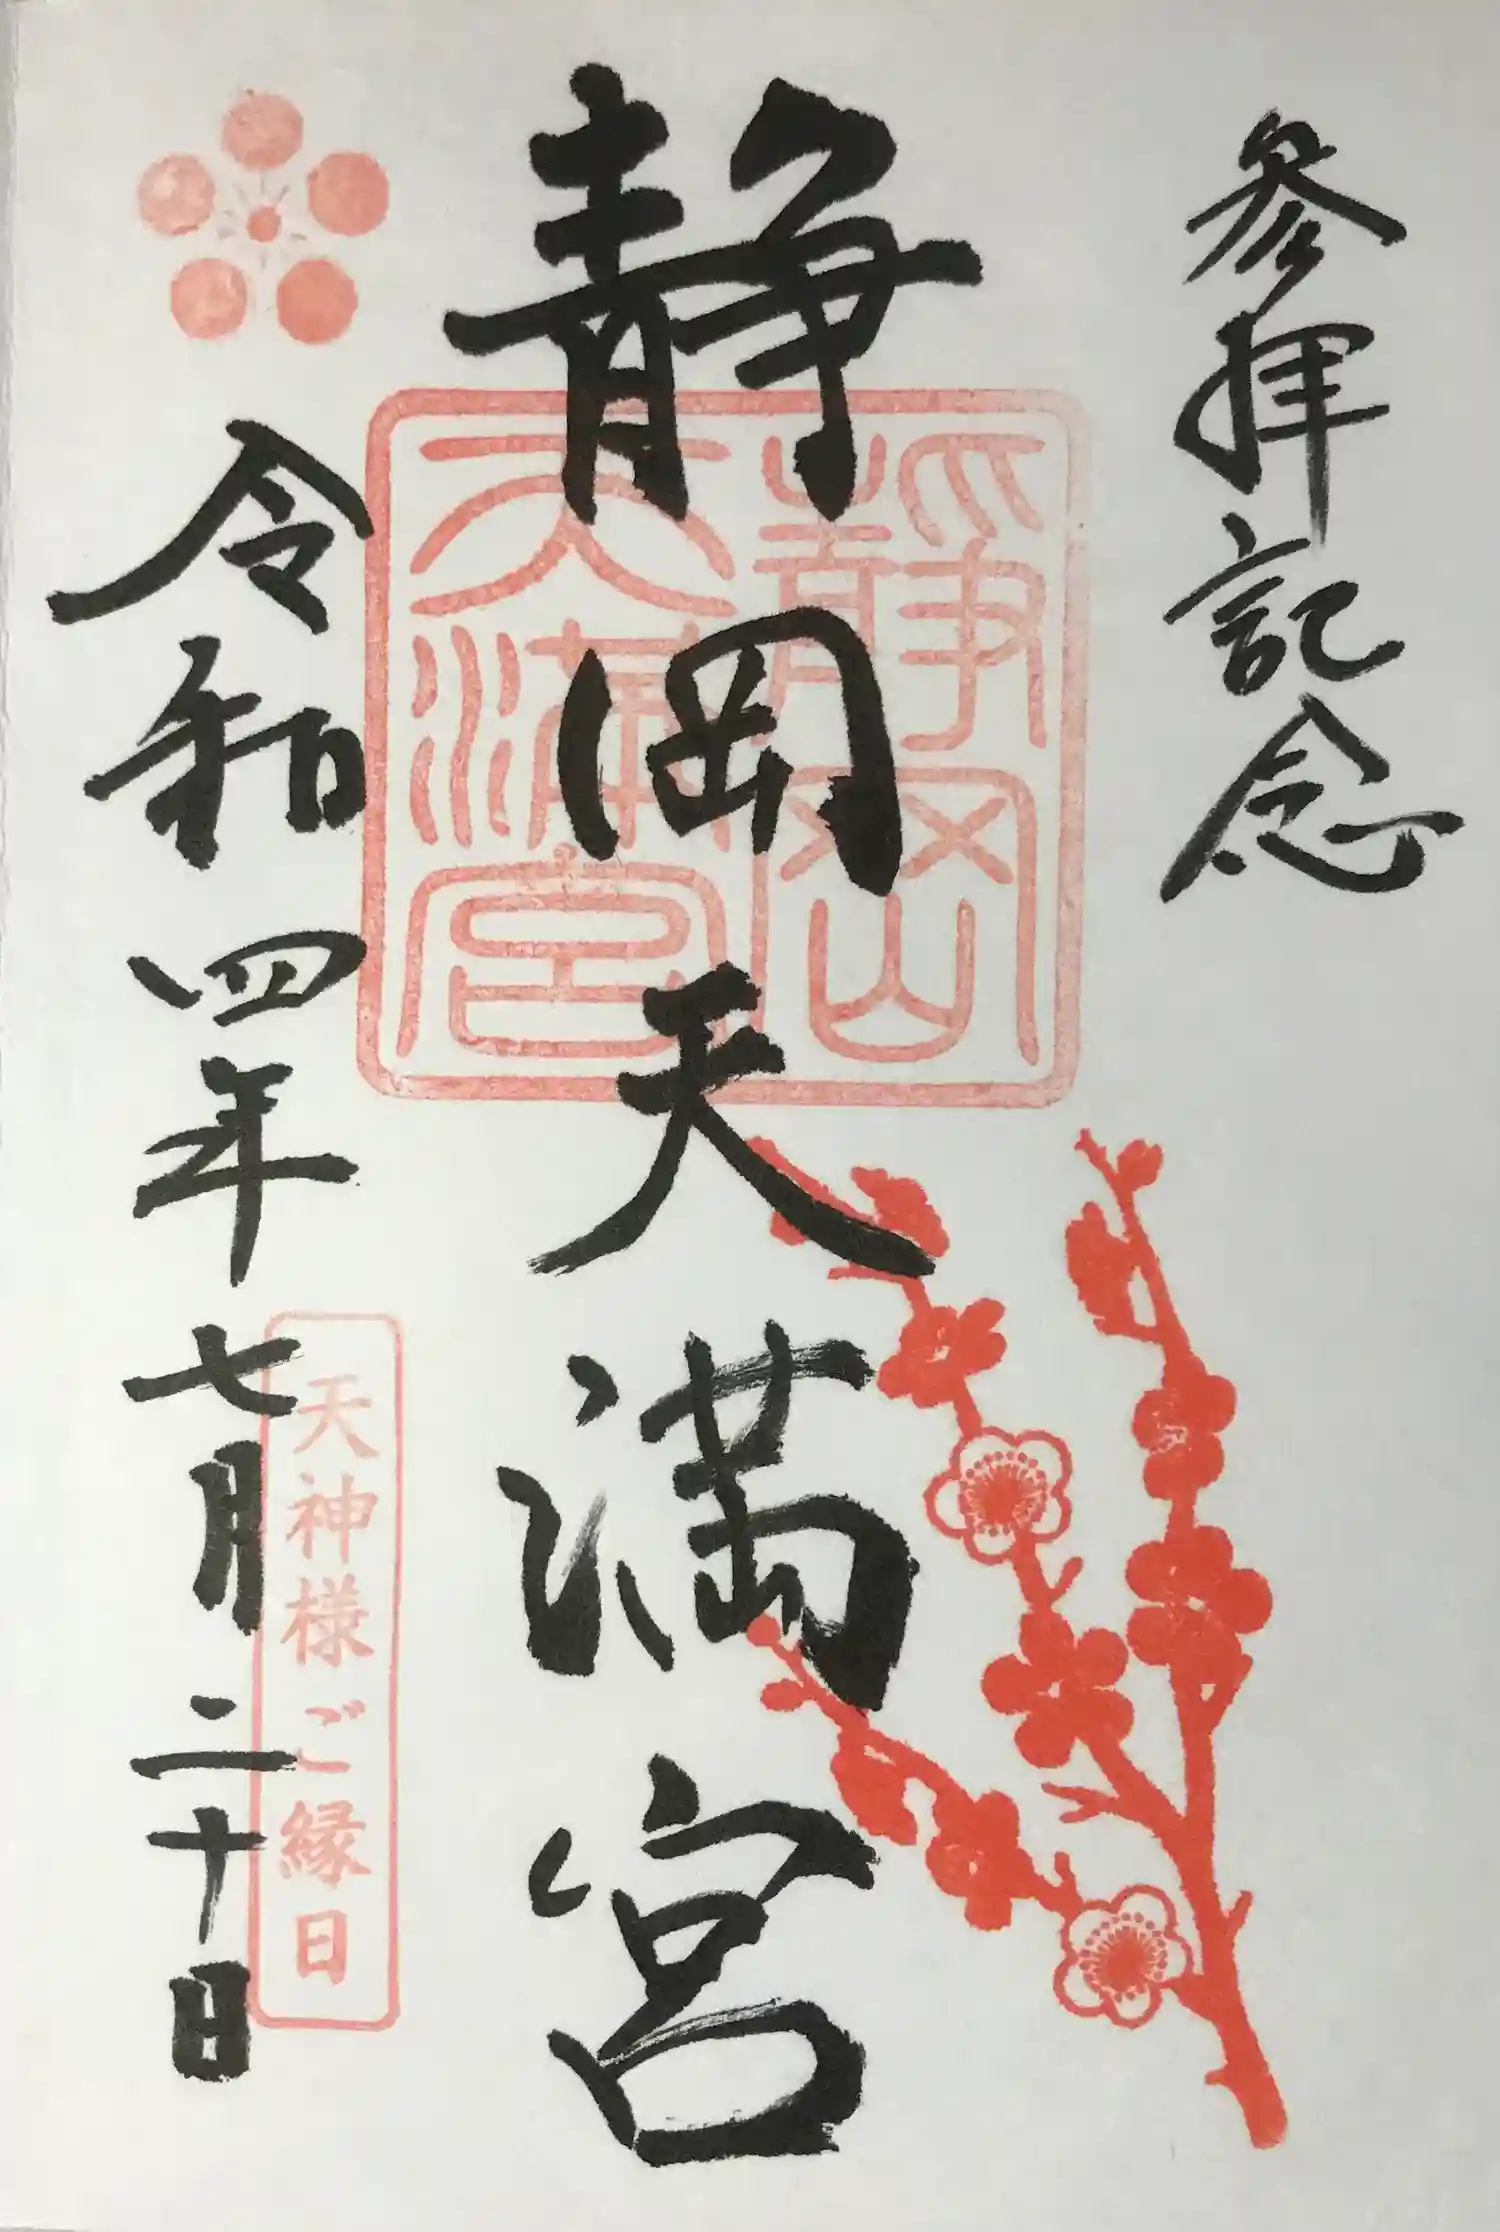 参拝記念
静岡天満宮
静岡
天満宮
令和四年七月二十日
天神様ご縁日